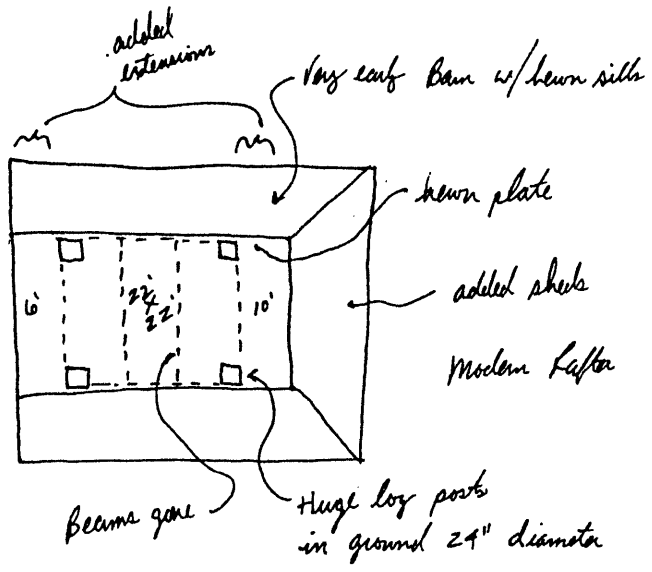 added
extensions
Very early Barn w/ hewn sills
hewn plate
6'
22'
x
22'
10'
added sheds
Modern Rafter
Beams gone
Huge log posts
in ground 24" diameter